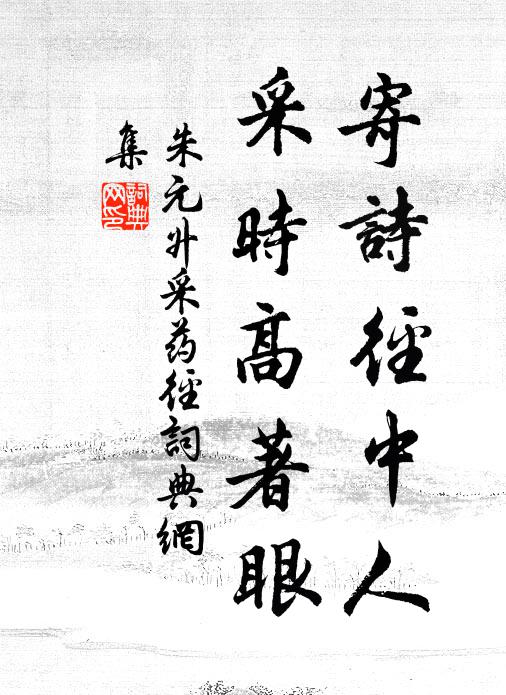 寄詩徑中人
采時高著眼
朱元升采药徑詞典網
集
詞典
网印